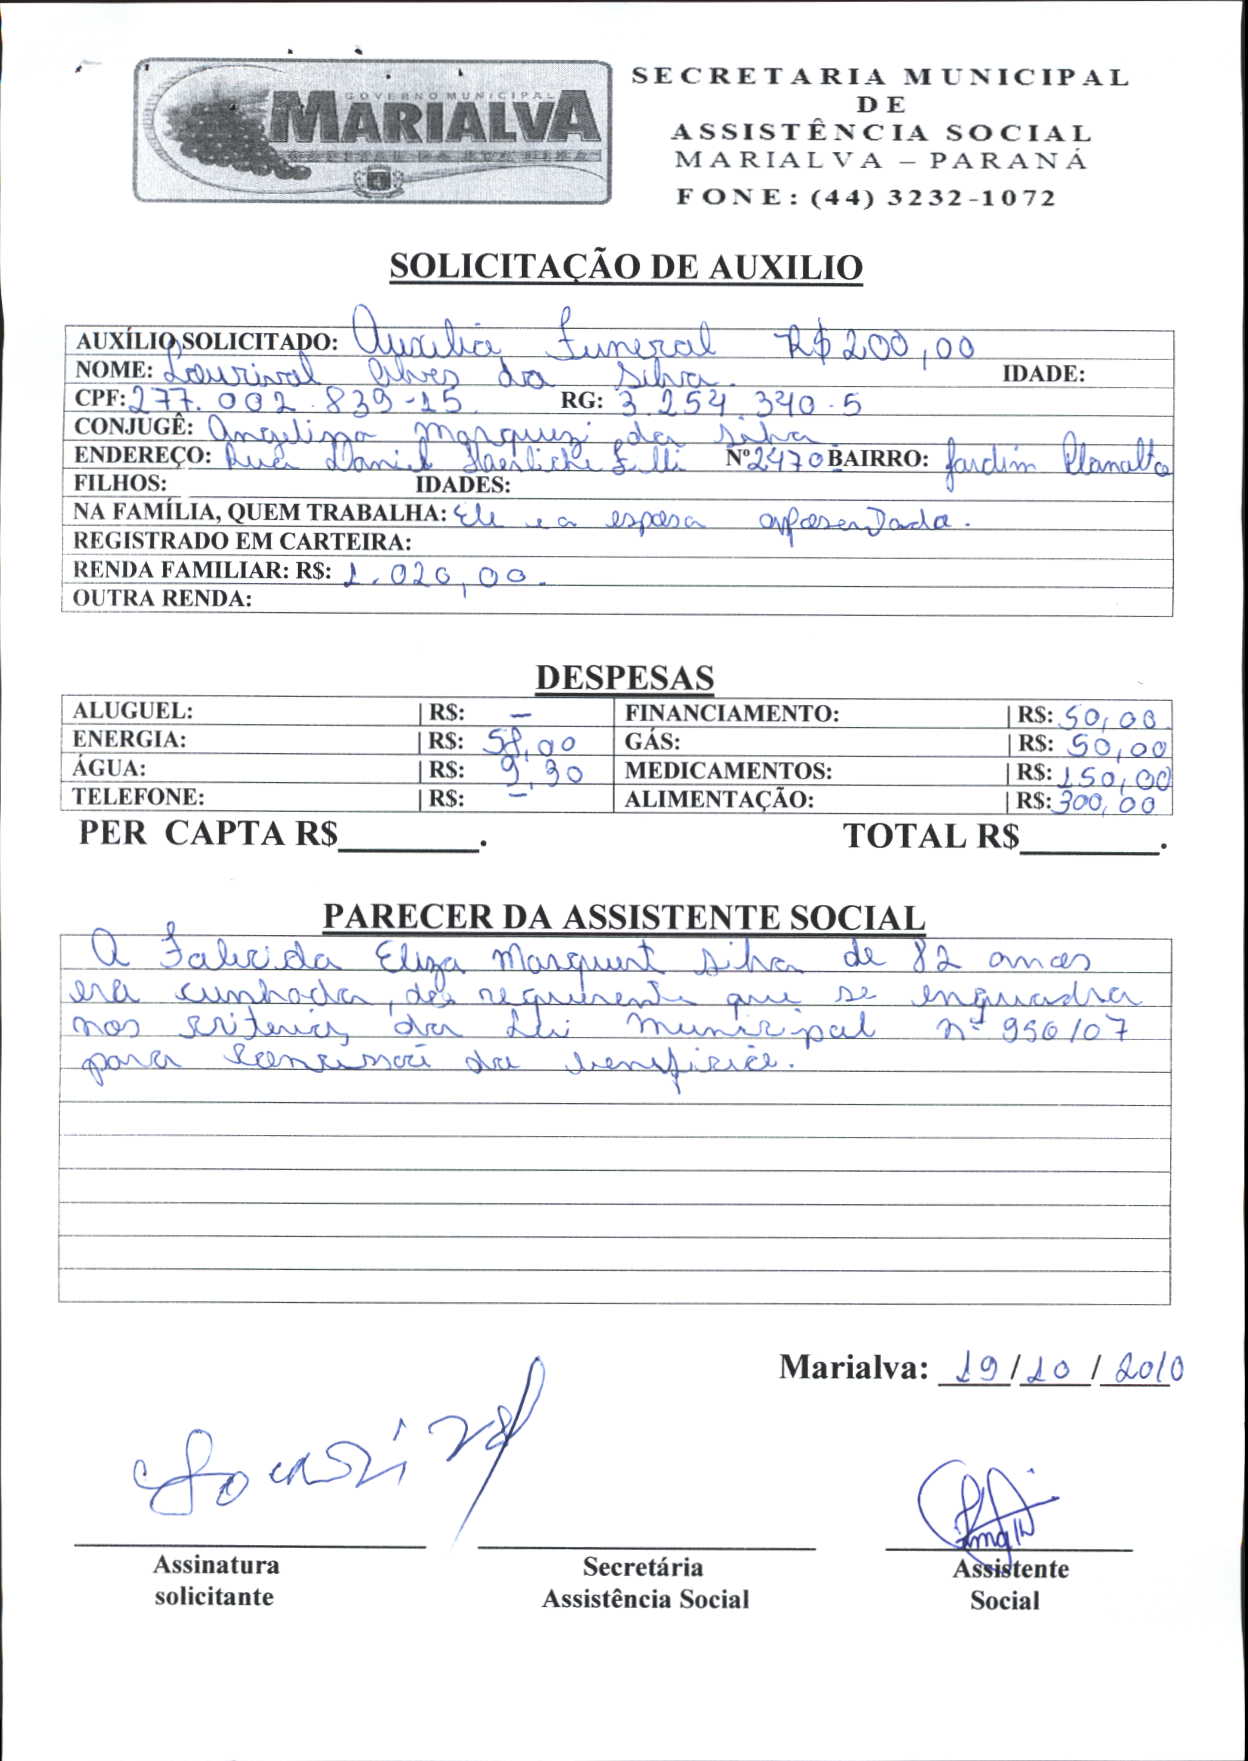 GOVERNO MUNICIPAL
MARIALVA
SECRETARIA MUNICIPAL
DE
ASSISTÊNCIA SOCIAL
MARIALVA – PARANÁ
FONE: (44) 3232-1072
SOLICITAÇÃO DE AUXILIO
AUXÍLIO SOLICITADO: Auxilio Funeral R$ 200,00
NOME: Lourival Alves da Silva. IDADE:
CPF: 277.002.839-15 RG: 3.254.340-5
CONJUGÊ: Angelina Marquezi da Silva
ENDEREÇO: Rua Daniel Nº 2470 BAIRRO: Jardim Planalto
FILHOS: IDADES:
NA FAMÍLIA, QUEM TRABALHA: Ele e a esposa aposentada.
REGISTRADO EM CARTEIRA:
RENDA FAMILIAR: R$: 1.020,00.
OUTRA RENDA:
DESPESAS
ALUGUEL: | R$: – FINANCIAMENTO: | R$: 50,00
ENERGIA: | R$: 58,00 GÁS: | R$: 50,00
ÁGUA: | R$: 9,30 MEDICAMENTOS: | R$: 150,00
TELEFONE: | R$: – ALIMENTAÇÃO: | R$: 300,00
PER CAPTA R$________. TOTAL R$________.
PARECER DA ASSISTENTE SOCIAL
A Falecida Eliza Silva de 82 anos
era cunhada do requerente que se enquadra
nos criterios da Lei Municipal nº 956/07
para concessão do beneficio.
Marialva: 19/10/2010
Lourival
Assinatura Secretária Assistente
solicitante Assistência Social Social